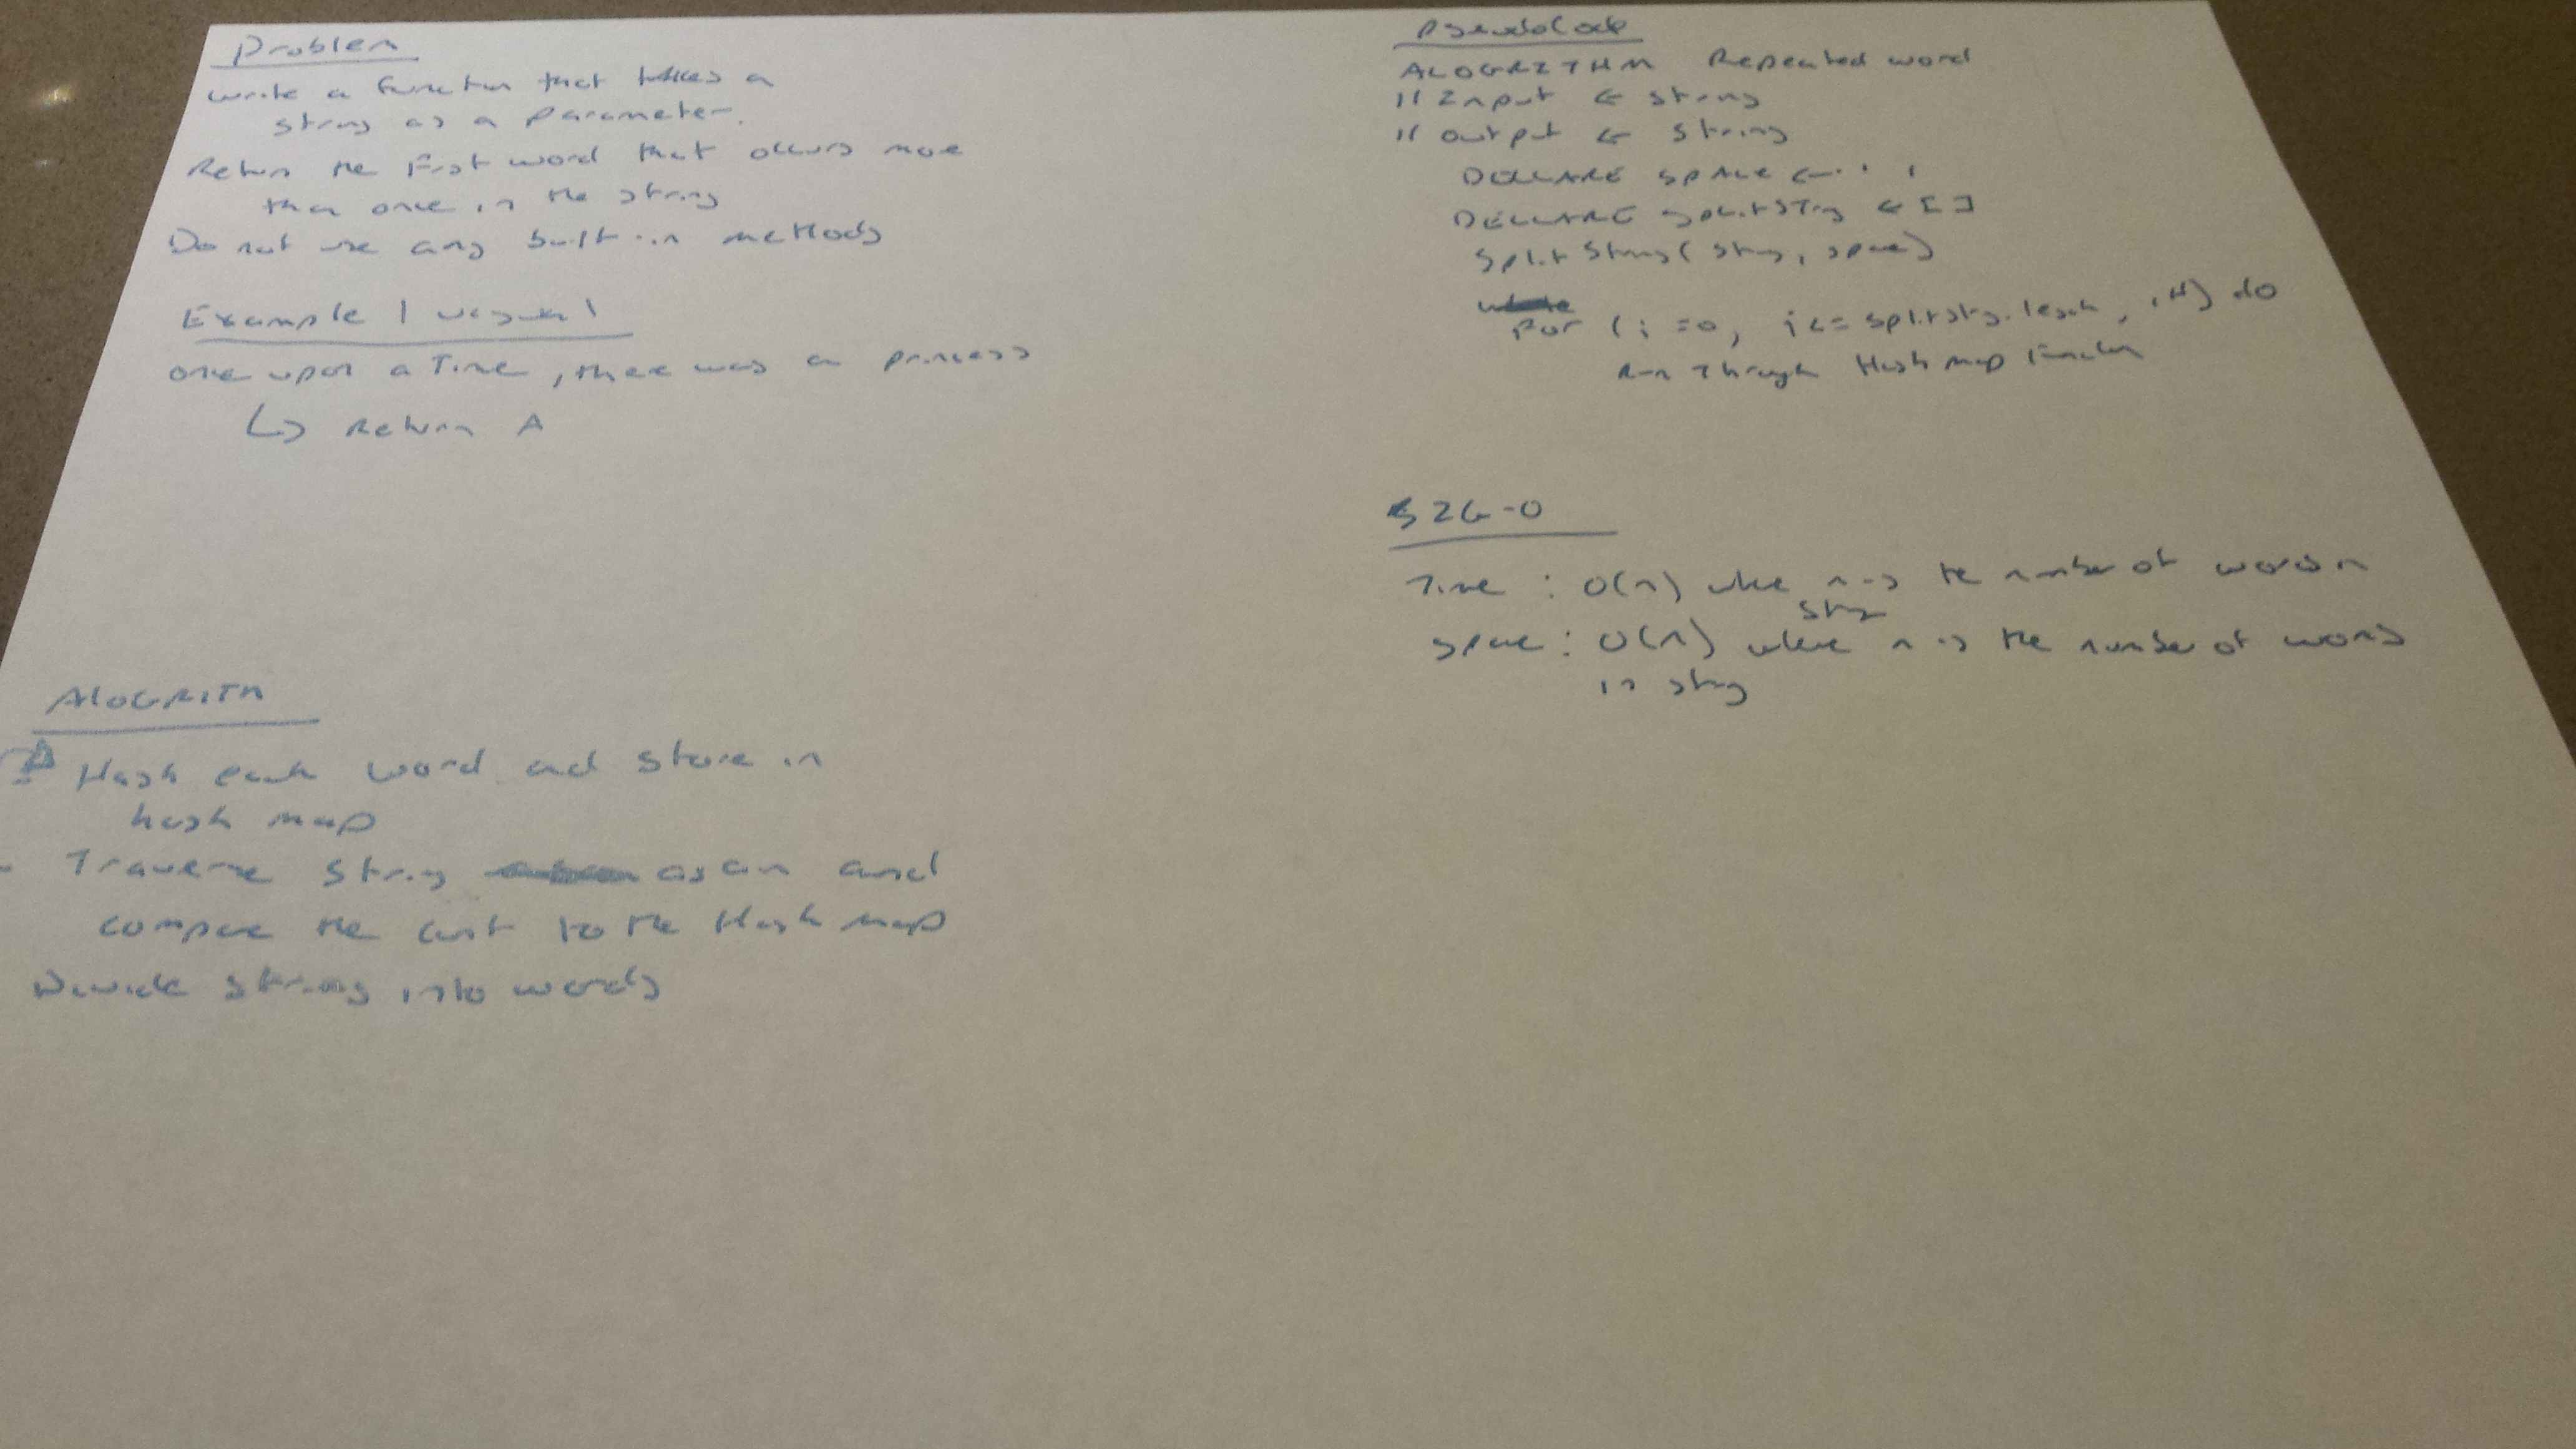 Problem
write a function that takes a
string as a parameter.
Return the first word that occurs more
than once in the string
Do not use any built-in methods
Example / visual
once upon a Time, there was a princess
↳ Return A
ALOGRITM
Hash each word and store in
hash map
- Traverse string again and
compare the to the Hash map
Divide string into words
Pseudocode
ALOGRITHM Repeated word
// Input ← string
// output ← string
DECLARE space ← ' '
DECLARE splitSTrg ← []
Split String( string, space)
For (i =0, i <= splitstrg.length, i++) do
Run Through Hash map Function
BIG-O
Time : O(n) where n is the number of words in
string
space : O(n) where n is the number of words
in string